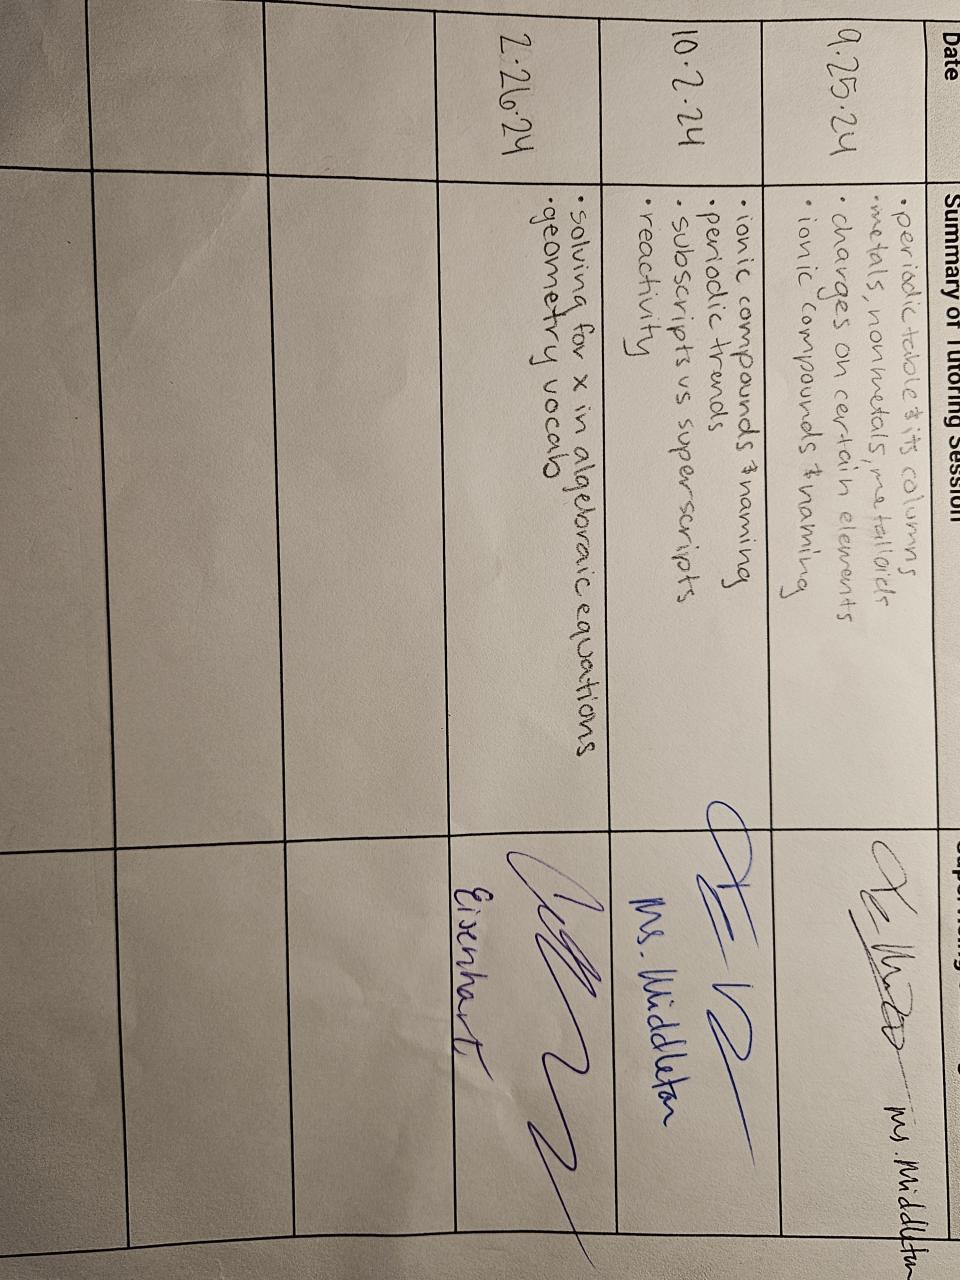 Date Summary of Tutoring Session Supervising
9.25.24
• periodic table & its columns
• metals, nonmetals, metalloids
• charges on certain elements
• ionic compounds & naming
Ms. Middleton
10.2.24
• ionic compounds & naming
• periodic trends
• subscripts vs superscripts
• reactivity
Ms. Middleton
2.26.24
• solving for x in algebraic equations
• geometry vocab
Eisenhart